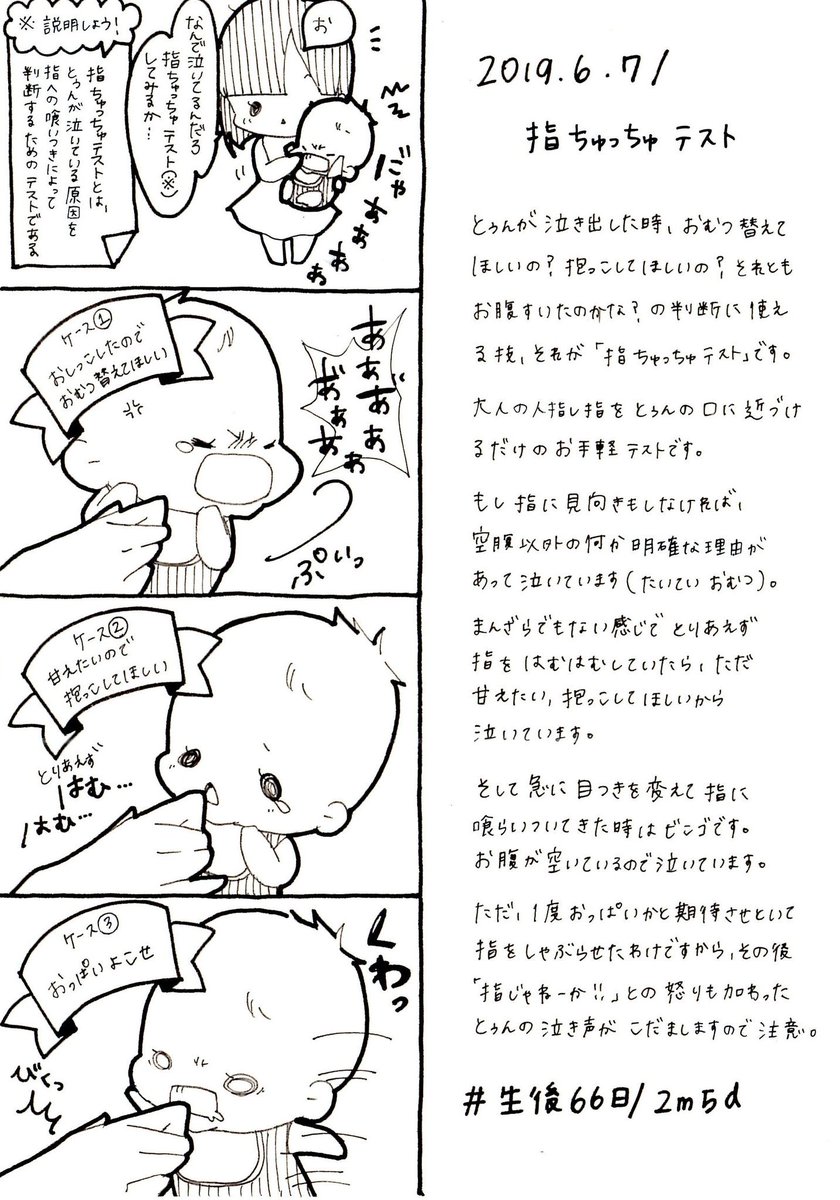 お
なんで泣いてるんだろ
指ちゅっちゅテスト(※)
してみるか…
※ 説明しよう!
指ちゅっちゅテストとは、
とぅんが泣いている原因を
指への喰いつきによって
判断するためのテストである
ごゃぁぁぁぁぁぁ
ケース①
おしっこしたので
おむつ替えてほしい
あぁあ゛ぁ
あ゛ぁぁぁ
ぷいっ
ケース②
甘えたいので
抱っこしてほしい
とりあえず
はむ…
はむ…
ケース③
おっぱいよこせ
くわっ
びくっ
2019.6.7/
指ちゅっちゅテスト
とぅんが泣き出した時、おむつ替えて
ほしいの?抱っこしてほしいの?それとも
お腹すいたのかな?の判断に使え
る技、それが「指ちゅっちゅテスト」です。
大人の人指し指をとぅんの口に近づけ
るだけのお手軽テストです。
もし指に見向きもしなければ、
空腹以外の何か明確な理由が
あって泣いています(たいていおむつ)。
まんざらでもない感じでとりあえず
指をはむはむしていたら、ただ
甘えたい、抱っこしてほしいから
泣いています。
そして急に目つきを変えて指に
喰らいついてきた時はビンゴです。
お腹が空いているので泣いています。
ただ、1度おっぱいかと期待させといて
指をしゃぶらせたわけですから、その後
「指じゃねーか!!」との怒りも加わった
とぅんの泣き声がこだましますので注意。
#生後66日/2m5d